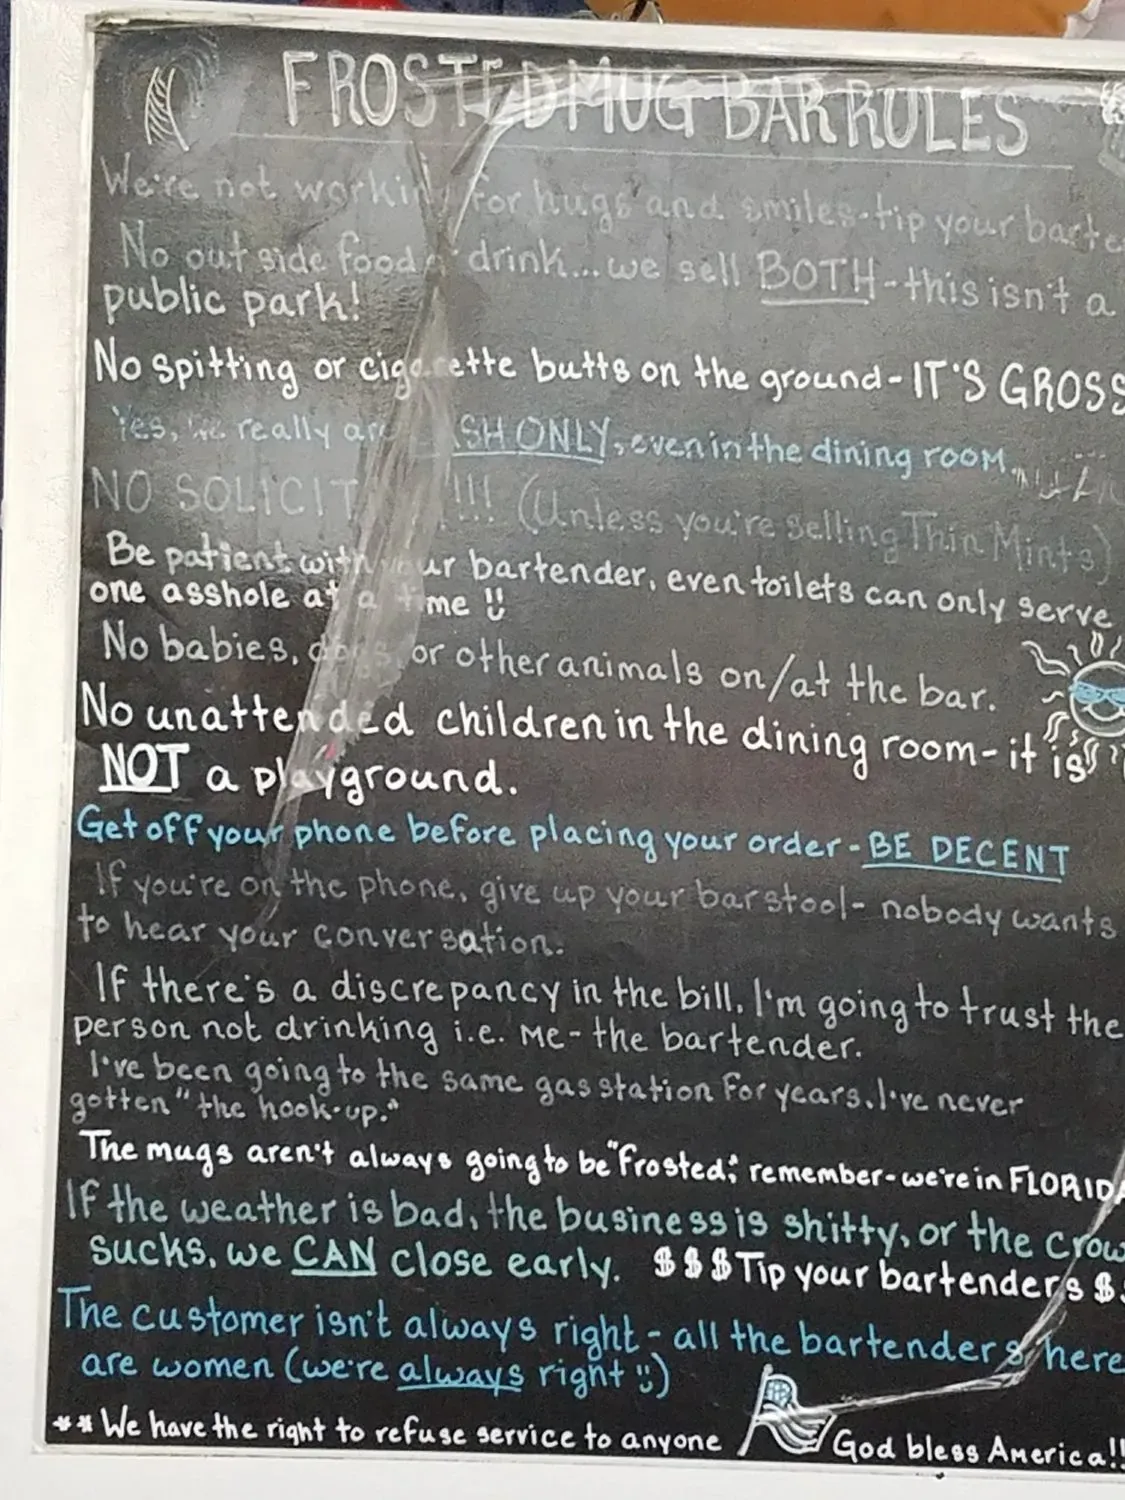 FROSTED MUG BAR RULES
We're not workin for hugs and smiles-tip your barte
No outside food drink...we sell BOTH-this isn't a
public park!
No spitting or cigarette butts on the ground-IT'S GROSS
Yes, we really are SH ONLY, even in the dining room.
NO SOLICIT !!! (Unless you're selling Thin Mints)
Be patient with your bartender, even toilets can only serve
one asshole at a time !!
No babies, dogs, or other animals on/at the bar.
No unattended children in the dining room-it is
NOT a playground.
Get off your phone before placing your order-BE DECENT
If you're on the phone, give up your barstool- nobody wants
to hear your conversation.
If there's a discrepancy in the bill, I'm going to trust the
person not drinking i.e. ME-the bartender.
I've been going to the same gas station for years. I've never
gotten "the hook-up."
The mugs aren't always going to be "Frosted", remember-we're in FLORIDA
If the weather is bad, the business is shitty, or the crow
sucks, we CAN close early. $$$Tip your bartenders $
The customer isn't always right-all the bartenders here
are women (we're always right :))
**We have the right to refuse service to anyone God bless America!!